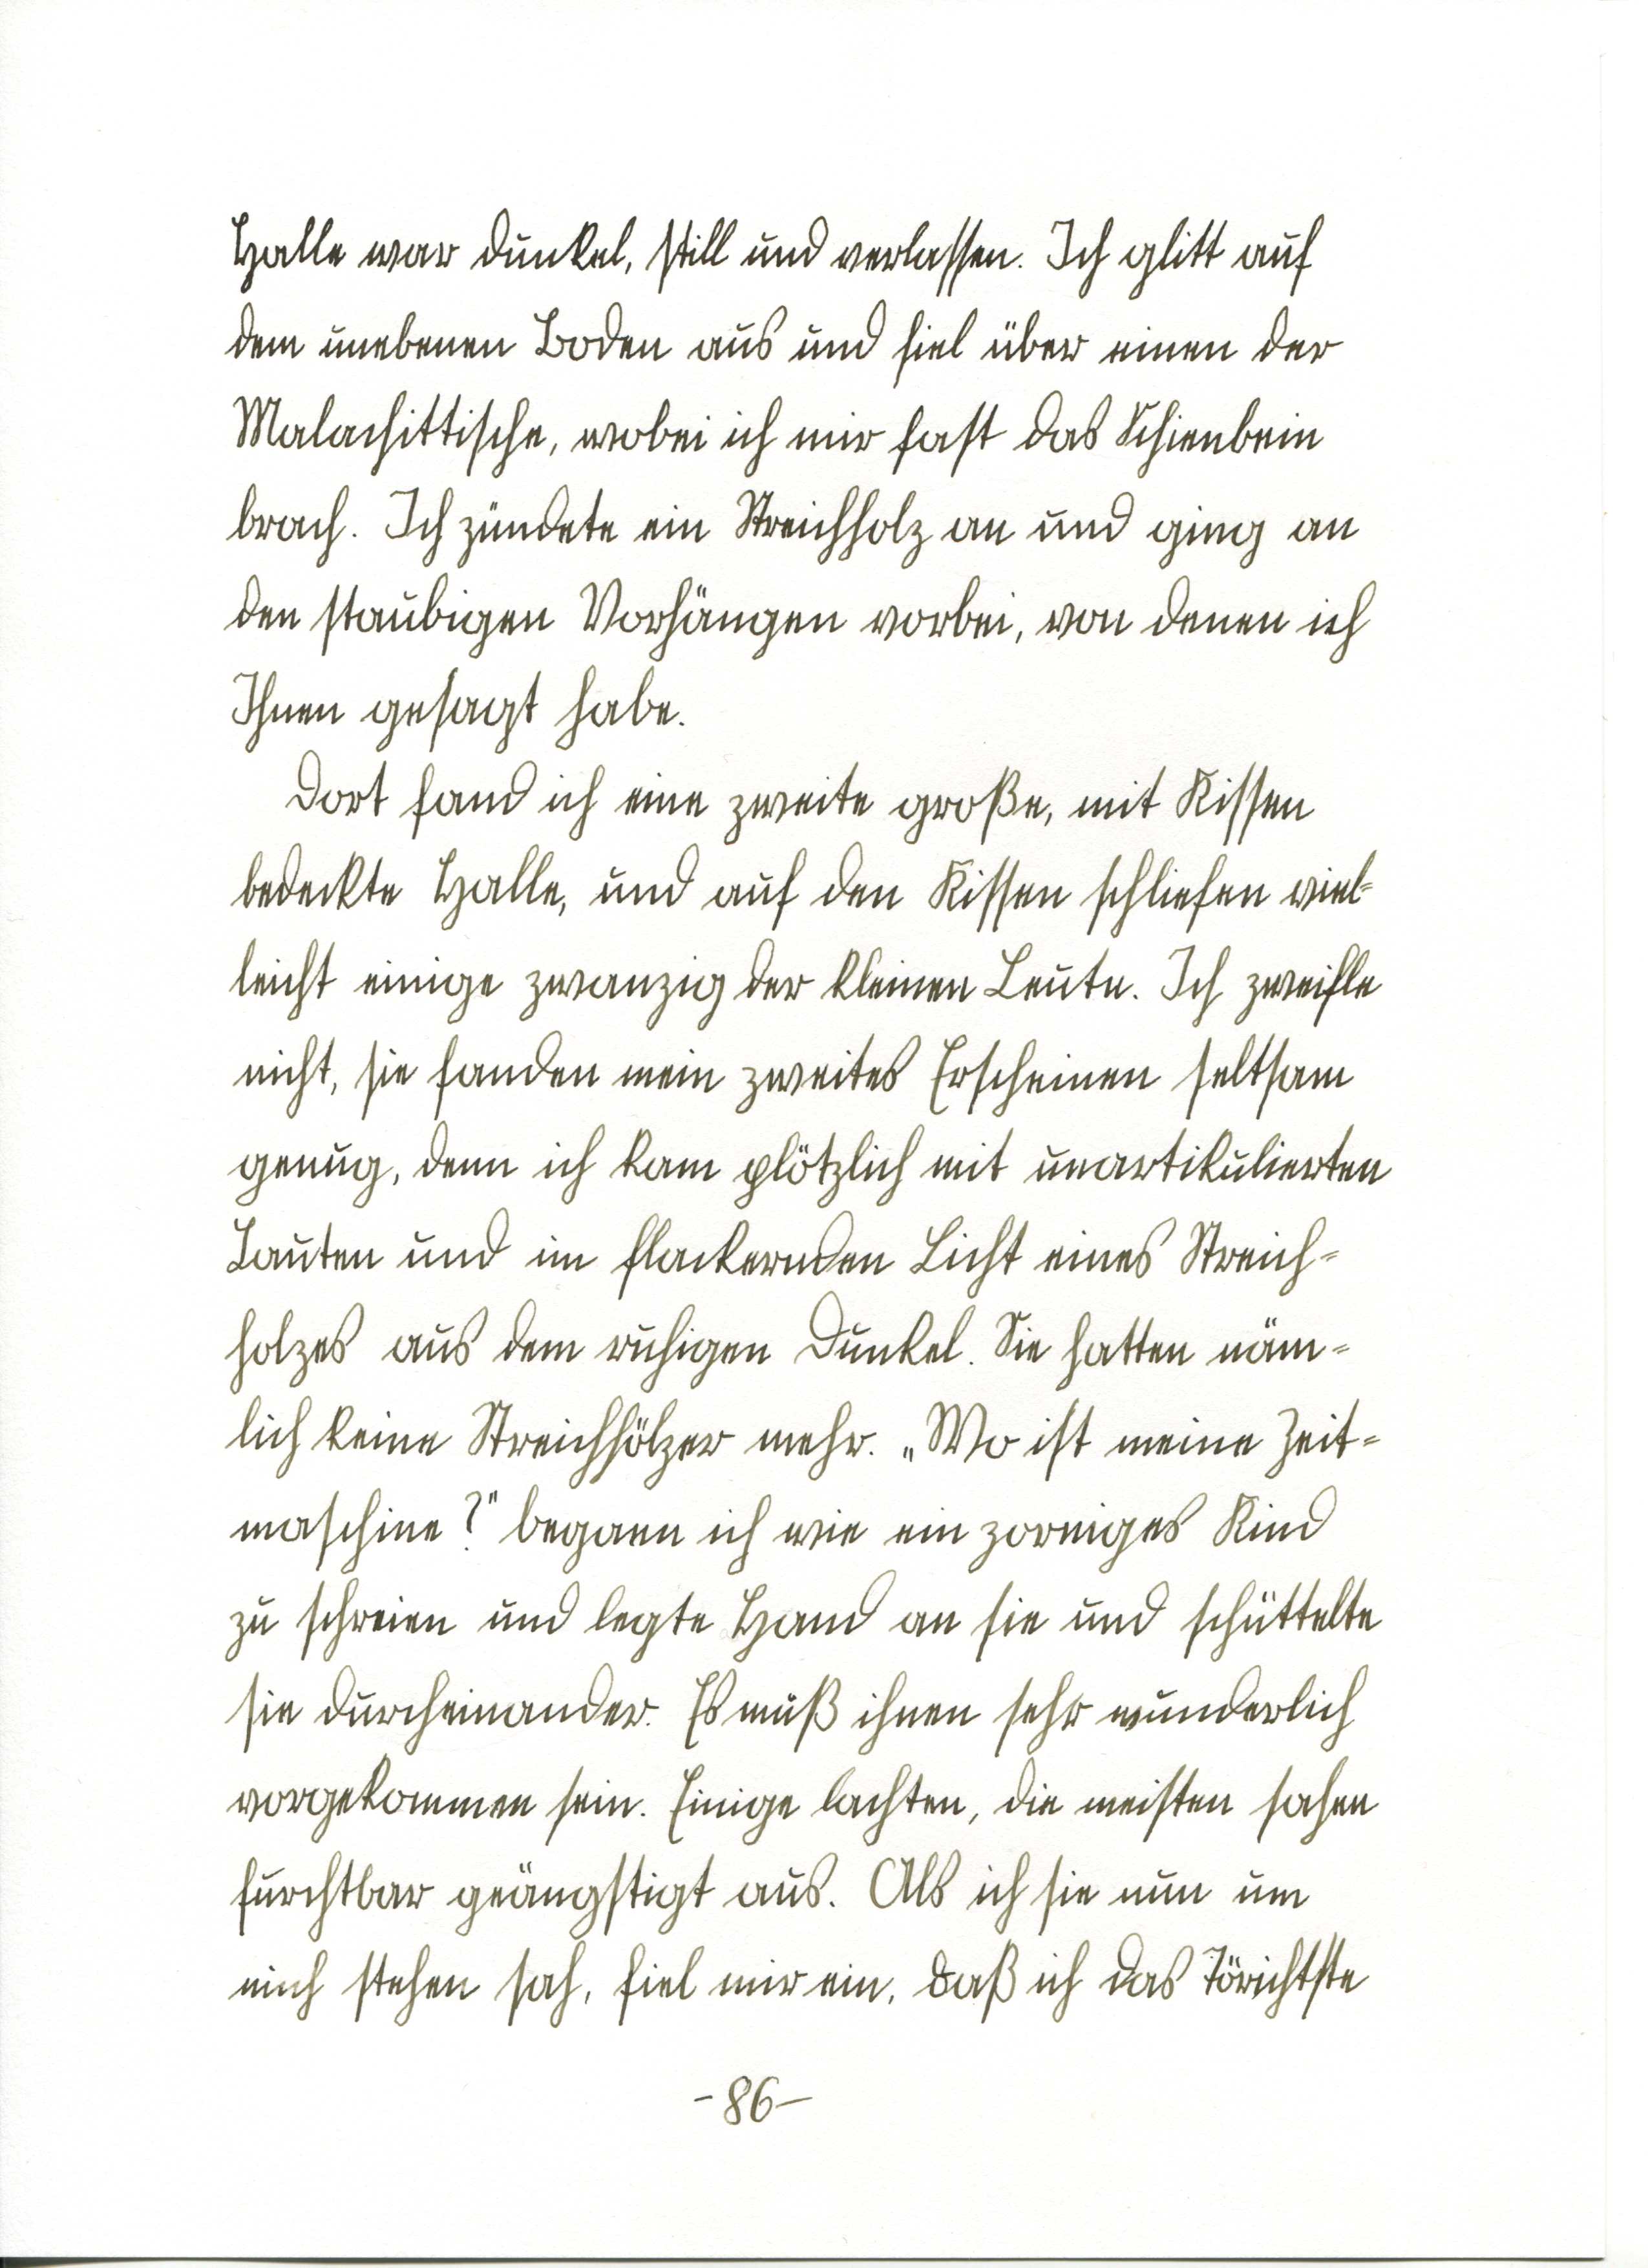 Halle war dunkel, still und verlassen. Ich glitt auf
dem unebenen Boden aus und fiel über einen der
Malachittische, wobei ich mir fast das Schienbein
brach. Ich zündete ein Streichholz an und ging an
den staubigen Vorhängen vorbei, von denen ich
Ihnen gesagt habe.
Dort fand ich eine zweite große, mit Kissen
bedeckte Halle, und auf den Kissen schliefen viel-
leicht einige zwanzig der kleinen Leute. Ich zweifle
nicht, sie fanden mein zweites Erscheinen seltsam
genug, denn ich kam plötzlich mit unartikulierten
Lauten und im flackernden Licht eines Streich-
holzes aus dem ruhigen Dunkel. Sie hatten näm-
lich keine Streichhölzer mehr. „Wo ist meine Zeit-
maschine?" begann ich wie ein zorniges Kind
zu schreien und legte Hand an sie und schüttelte
sie durcheinander. Es muß ihnen sehr wunderlich
vorgekommen sein. Einige lachten, die meisten sahen
furchtbar geängstigt aus. Als ich sie nun um
mich stehen sah, fiel mir ein, daß ich das Törichtste
-86-